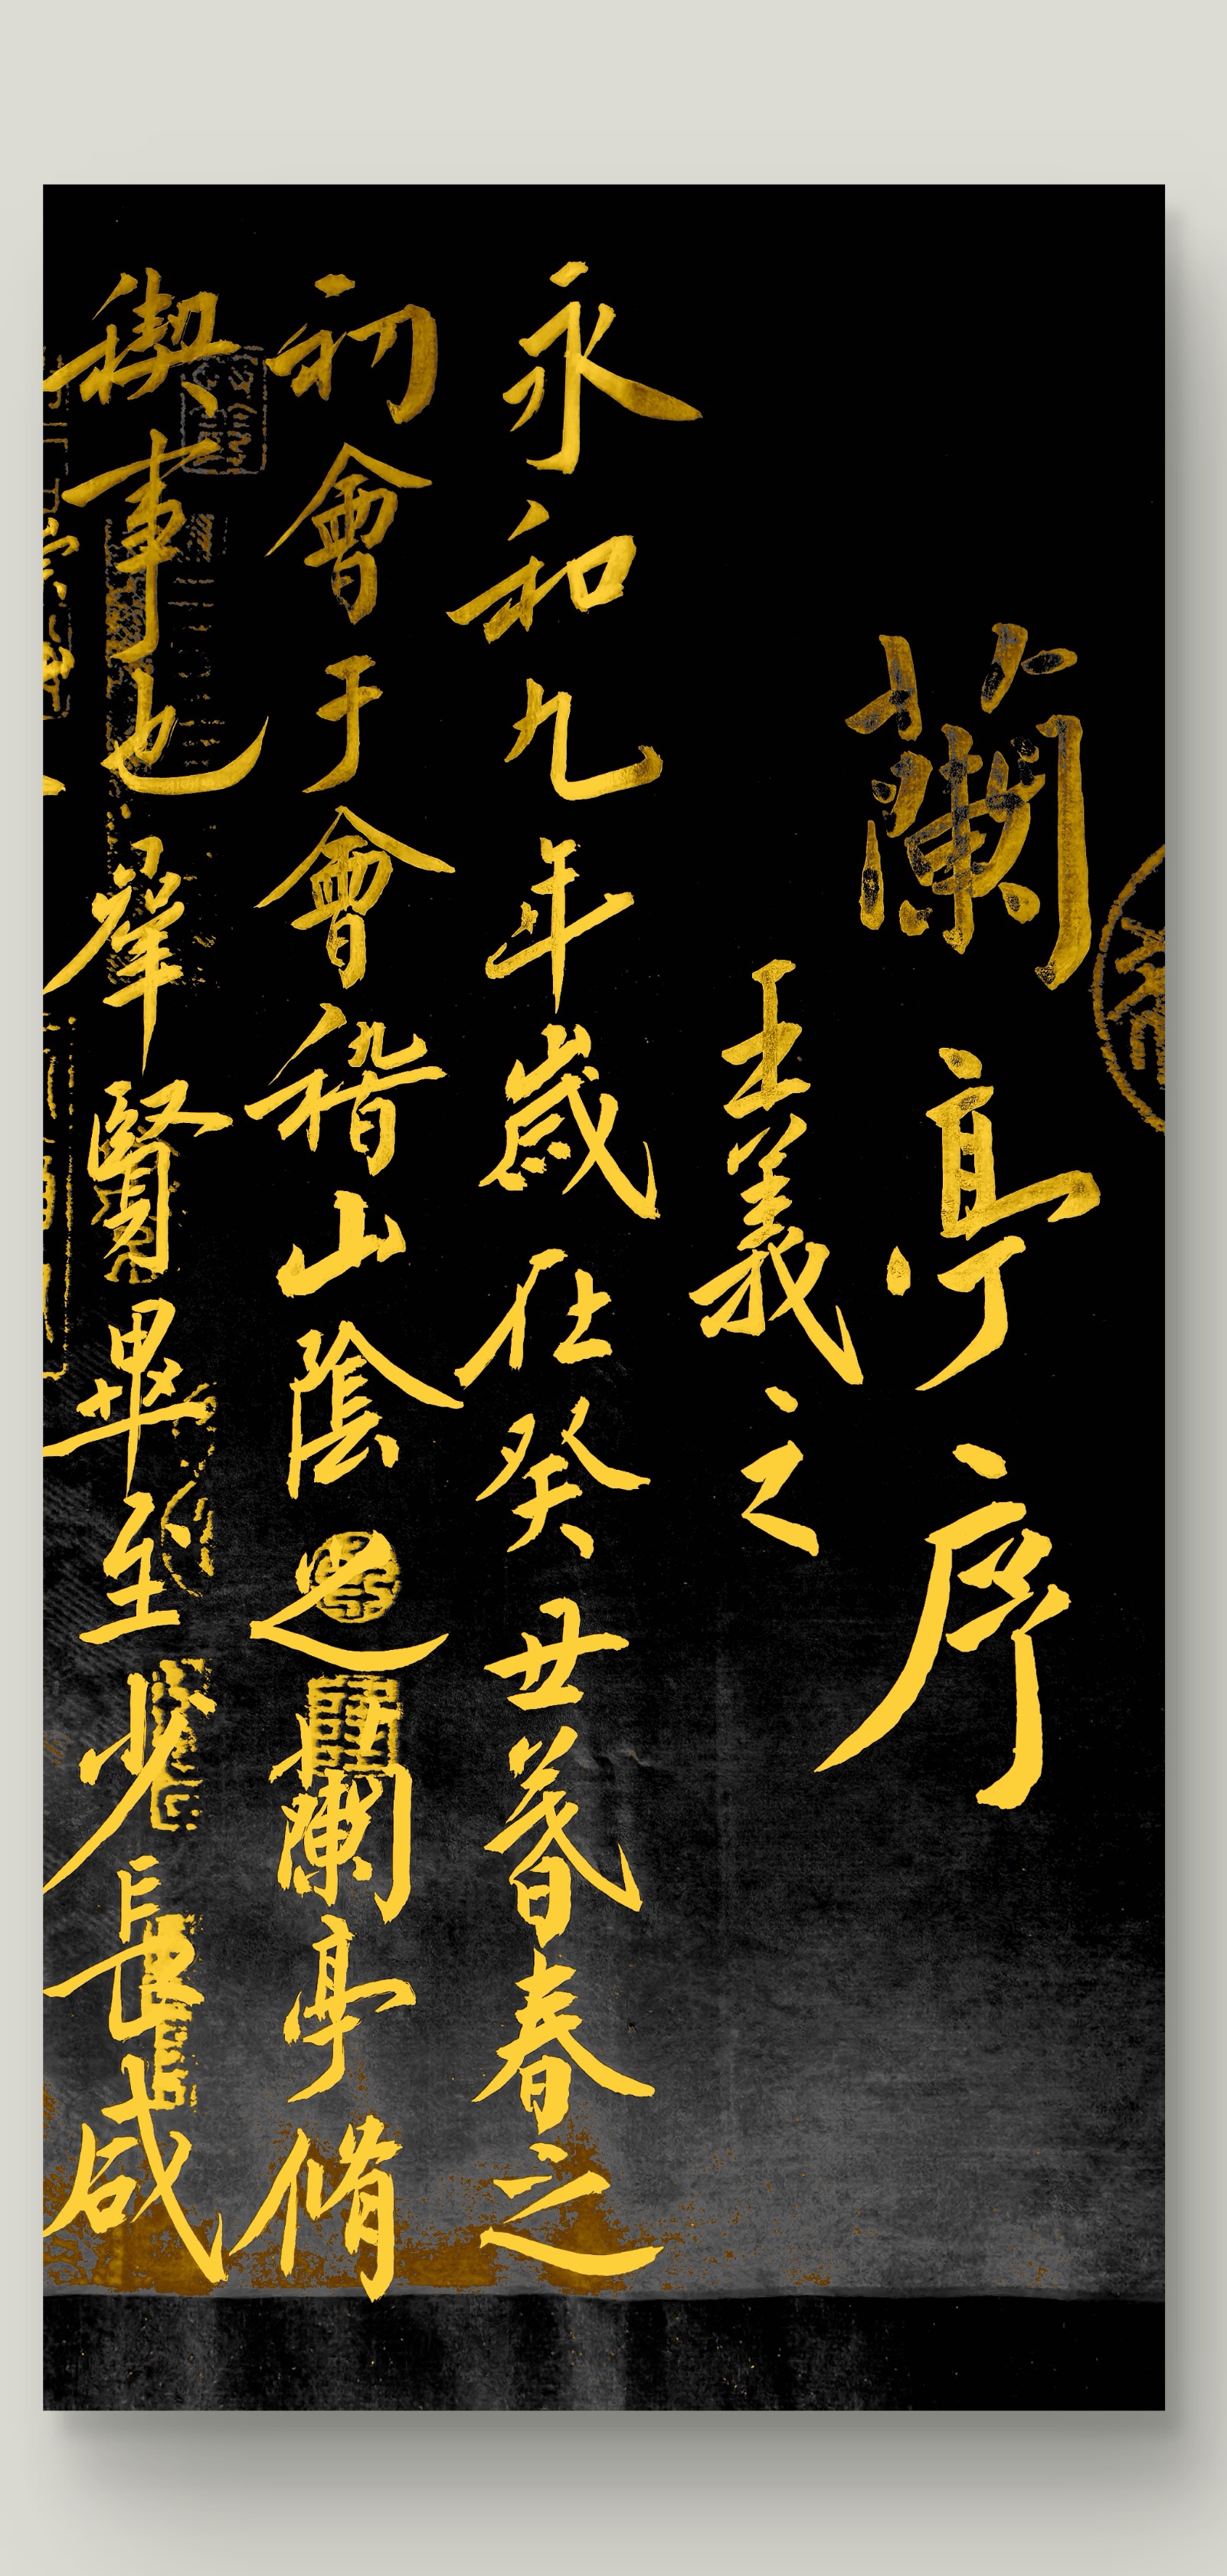 蘭亭序
王羲之
永和九年歲在癸丑暮春之
初會于會稽山陰之蘭亭脩
稧事也羣賢畢至少長咸